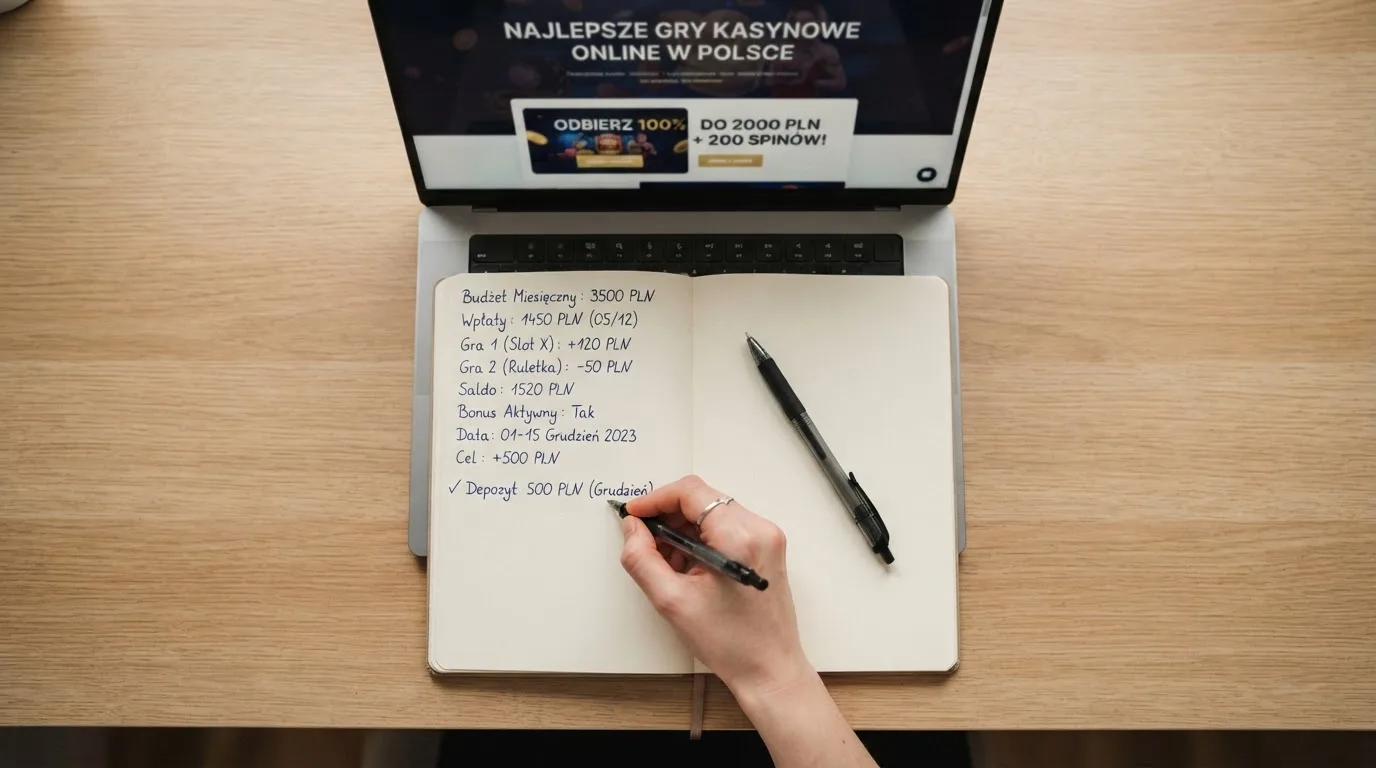 NAJLEPSZE GRY KASYNOWE
ONLINE W POLSCE
ODBIERZ 100%
DO 2000 PLN
+ 200 SPINÓW!
Budżet Miesięczny: 3500 PLN
Wpłaty: 1450 PLN (05/12)
Gra 1 (Slot X): +120 PLN
Gra 2 (Ruletka): -50 PLN
Saldo: 1520 PLN
Bonus Aktywny: Tak
Data: 01-15 Grudzień 2023
Cel: +500 PLN
✓ Depozyt 500 PLN (Grudzień)